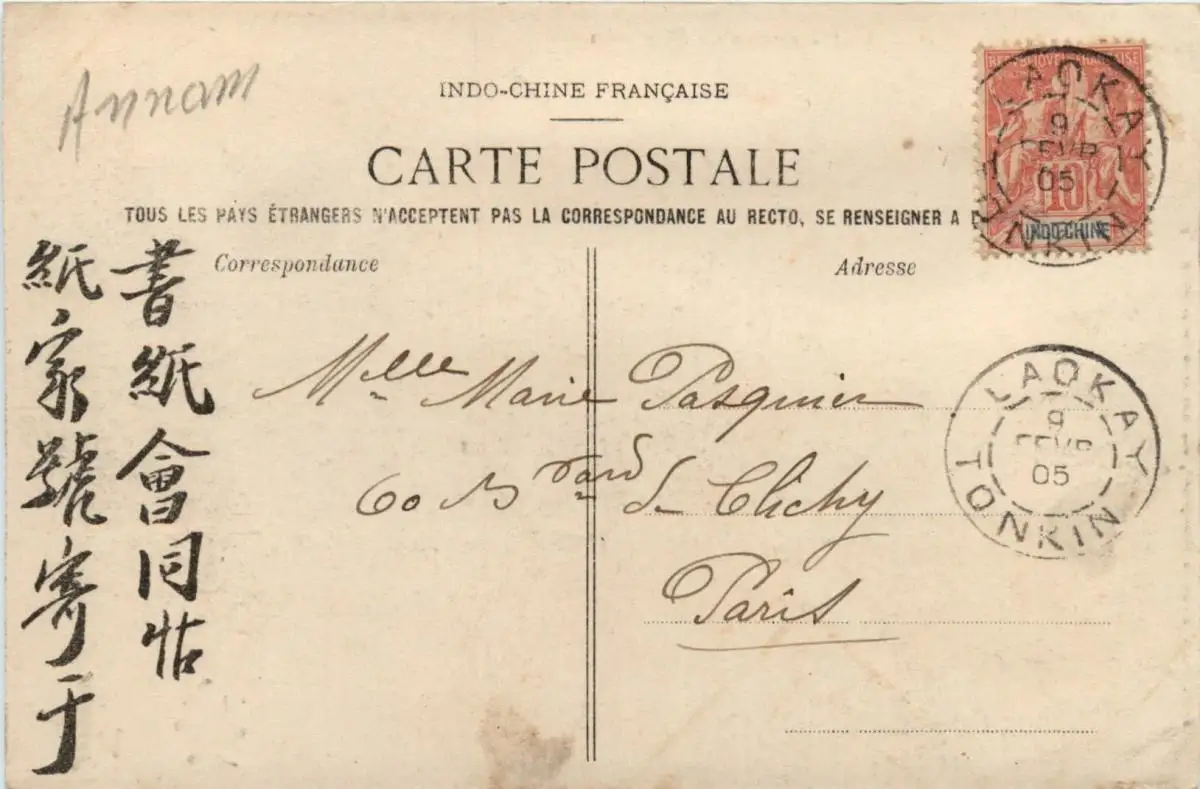 Annam
INDO-CHINE FRANÇAISE
CARTE POSTALE
TOUS LES PAYS ÉTRANGERS N'ACCEPTENT PAS LA CORRESPONDANCE AU RECTO, SE RENSEIGNER A
Correspondance
Adresse
REPUBLIQUE FRANÇAISE
10
INDO-CHINE
LAOKAY
9
FEVR
05
TONKIN
書紙會同帖
紙家號寄于
Mlle Marie Pasquier
60 Bvard de Clichy
Paris
LAOKAY
9
FEVR
05
TONKIN